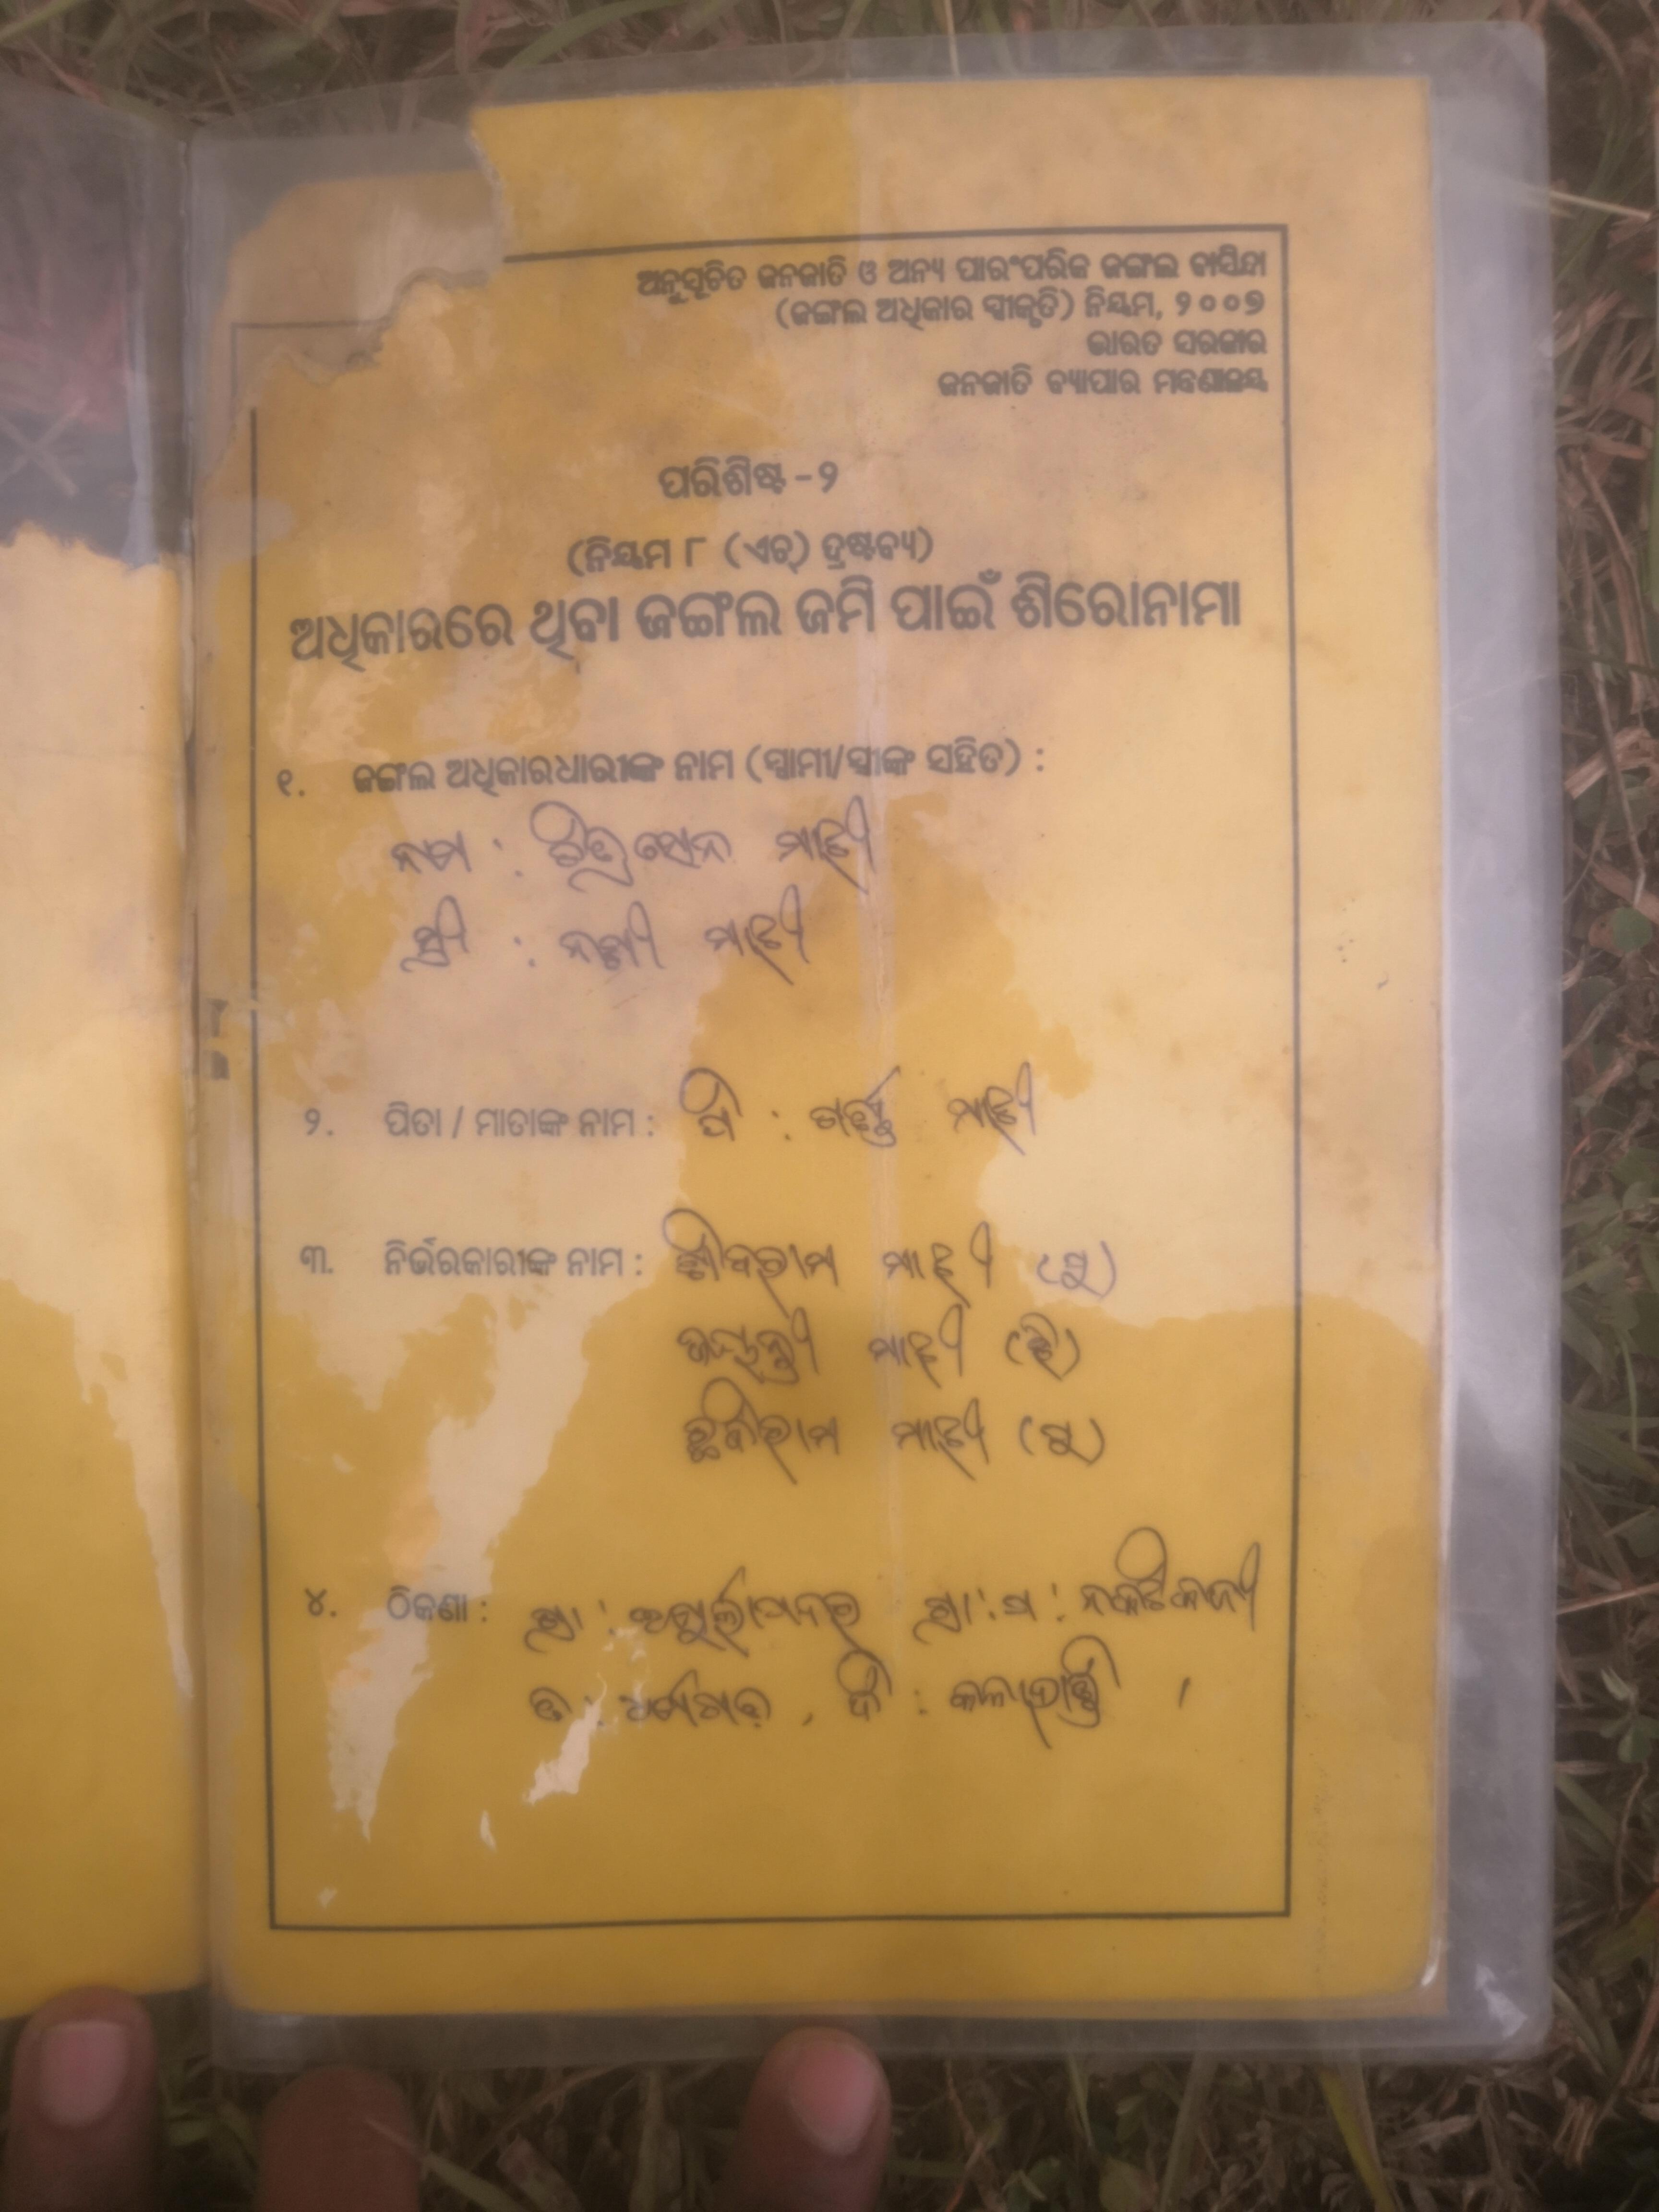 ଅନୁସୂଚିତ ଜନଜାତି ଓ ଅନ୍ୟ ପାରଂପରିକ ଜଙ୍ଗଲ ବାସିନ୍ଦା
(ଜଙ୍ଗଲ ଅଧିକାର ସ୍ୱୀକୃତି) ନିୟମ, ୨୦୦୭
ଭାରତ ସରକାର
ଜନଜାତି ବ୍ୟାପାର ମନ୍ତ୍ରଣାଳୟ
ପରିଶିଷ୍ଟ-୨
(ନିୟମ ୮ (ଏଚ୍) ଦ୍ରଷ୍ଟବ୍ୟ)
ଅଧିକାରରେ ଥିବା ଜଙ୍ଗଲ ଜମି ପାଇଁ ଶିରୋନାମା
୧. ଜଙ୍ଗଲ ଅଧିକାରଧାରୀଙ୍କ ନାମ (ସ୍ୱାମୀ/ସ୍ତ୍ରୀଙ୍କ ସହିତ) :
ନାମ : ଚିତ୍ରସେନ ମାଝୀ
ସ୍ତ୍ରୀ : ମାଝୀ
୨. ପିତା / ମାତାଙ୍କ ନାମ : ପି : ମାଝୀ
୩. ନିର୍ଭରକାରୀଙ୍କ ନାମ : ମାଝୀ (ପୁ)
ଜୟନ୍ତୀ ମାଝୀ (ଝି)
ମାଝୀ (ପୁ)
୪. ଠିକଣା : ଗ୍ରା : ଗ୍ରା : ପ :
ବ : ଧର୍ମଗଡ଼ , ଜି : କଳାହାଣ୍ଡି ।